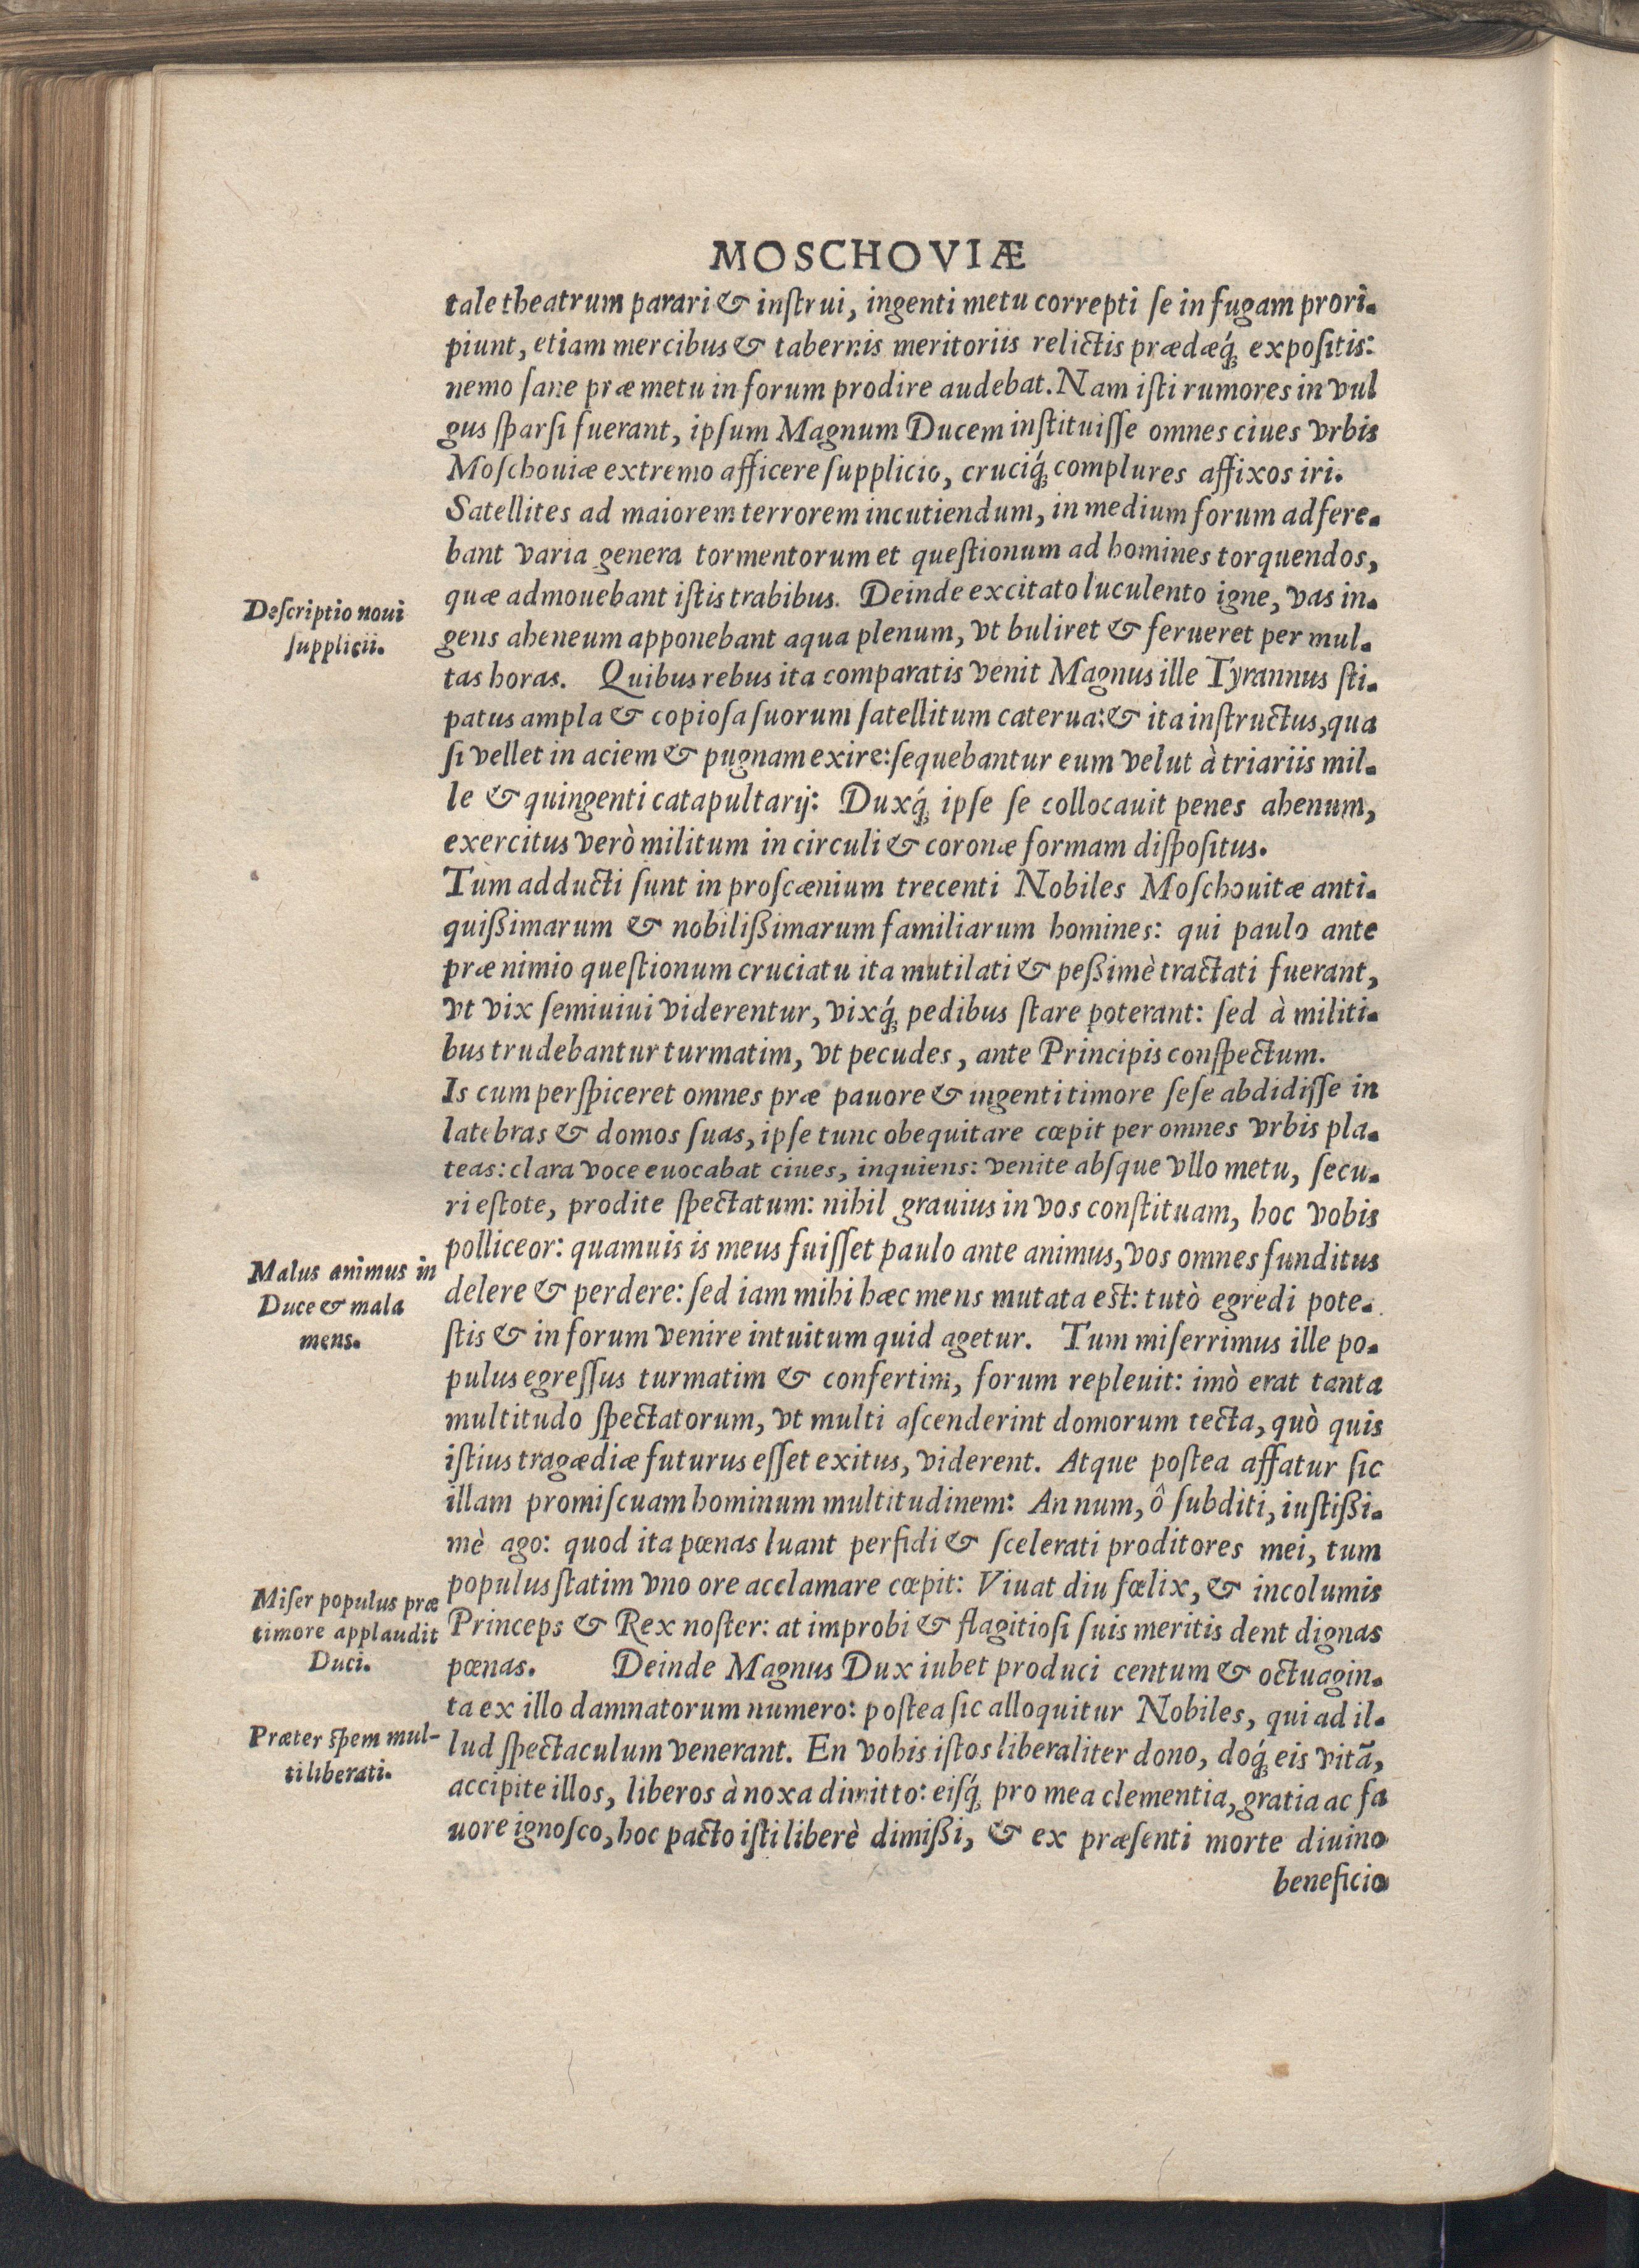 MOSCHOVIÆ
tale theatrum parari & inſtrui, ingenti metu correpti ſe in fugam prori-
piunt, etiam mercibus & tabernis meritoriis relictis prædæq́; expoſitis:
nemo ſane præ metu in forum prodire audebat. Nam iſti rumores in vul
gus ſparſi fuerant, ipſum Magnum Ducem inſtituiſſe omnes ciues vrbis
Moſchouiæ extremo afficere ſupplicio, cruciq́; complures affixos iri.
Satellites ad maiorem terrorem incutiendum, in medium forum adfere-
bant varia genera tormentorum et queſtionum ad homines torquendos,
quæ admouebant iſtis trabibus. Deinde excitato luculento igne, vas in-
Deſcriptio noui
ſupplicii.
gens aheneum apponebant aqua plenum, vt buliret & ferueret per mul-
tas horas. Quibus rebus ita comparatis venit Magnus ille Tyrannus ſti-
patus ampla & copioſa ſuorum ſatellitum caterua: & ita inſtructus, qua
ſi vellet in aciem & pugnam exire: ſequebantur eum velut à triariis mil-
le & quingenti catapultarij: Duxq́; ipſe ſe collocauit penes ahenum,
exercitus verò militum in circuli & coronæ formam diſpoſitus.
Tum adducti ſunt in proſcænium trecenti Nobiles Moſchouitæ anti-
quißimarum & nobilißimarum familiarum homines: qui paulo ante
præ nimio queſtionum cruciatu ita mutilati & peßimè tractati fuerant,
vt vix ſemiuiui viderentur, vixq́; pedibus ſtare poterant: ſed à militi-
bus trudebantur turmatim, vt pecudes, ante Principis conſpectum.
Is cum perſpiceret omnes præ pauore & ingenti timore ſeſe abdidiſſe in
latebras & domos ſuas, ipſe tunc obequitare cœpit per omnes vrbis pla-
teas: clara voce euocabat ciues, inquiens: venite abſque vllo metu, ſecu-
ri eſtote, prodite ſpectatum: nihil grauius in vos conſtituam, hoc vobis
polliceor: quamuis is meus fuiſſet paulo ante animus, vos omnes funditus
Malus animus in
Duce & mala
mens.
delere & perdere: ſed iam mihi hæc mens mutata eſt: tutò egredi pote-
ſtis & in forum venire intuitum quid agetur. Tum miſerrimus ille po-
pulus egreſſus turmatim & confertim, forum repleuit: imò erat tanta
multitudo ſpectatorum, vt multi aſcenderint domorum tecta, quò quis
iſtius tragædiæ futurus eſſet exitus, viderent. Atque poſtea affatur ſic
illam promiſcuam hominum multitudinem: An num, ô ſubditi, iuſtißi-
mè ago: quod ita pœnas luant perfidi & ſcelerati proditores mei, tum
populus ſtatim vno ore acclamare cœpit: Viuat diu fœlix, & incolumis
Miſer populus præ
timore applaudit
Duci.
Princeps & Rex noſter: at improbi & flagitioſi ſuis meritis dent dignas
pœnas. Deinde Magnus Dux iubet produci centum & octuagin-
ta ex illo damnatorum numero: poſtea ſic alloquitur Nobiles, qui ad il-
Præter ſpem mul-
ti liberati.
lud ſpectaculum venerant. En vobis iſtos liberaliter dono, doq́; eis vitã,
accipite illos, liberos à noxa dimitto: eiſq́; pro mea clementia, gratia ac fa
uore ignoſco, hoc pacto iſti liberè dimißi, & ex præſenti morte diuino
beneficio